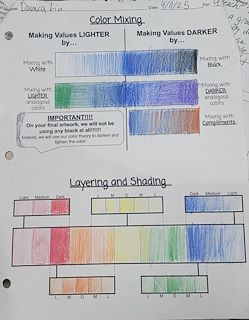 Danica Lin Date: 9/11/25
Color Mixing
Making Values LIGHTER
by...
Making Values DARKER
by...
Mixing with
White
Mixing with
Black
Mixing with
LIGHTER
analogous
colors
Mixing with
DARKER
analogous
colors
IMPORTANT!!!!
On your final artwork, we will not be
using any black at all!!!!!!!
Instead, we will use our color theory to darken and
lighten the color
Mixing with
Compliments.
Layering and Shading
Light Medium Dark
L M D M L
Dark Medium Light
L M D M L
L M D M L